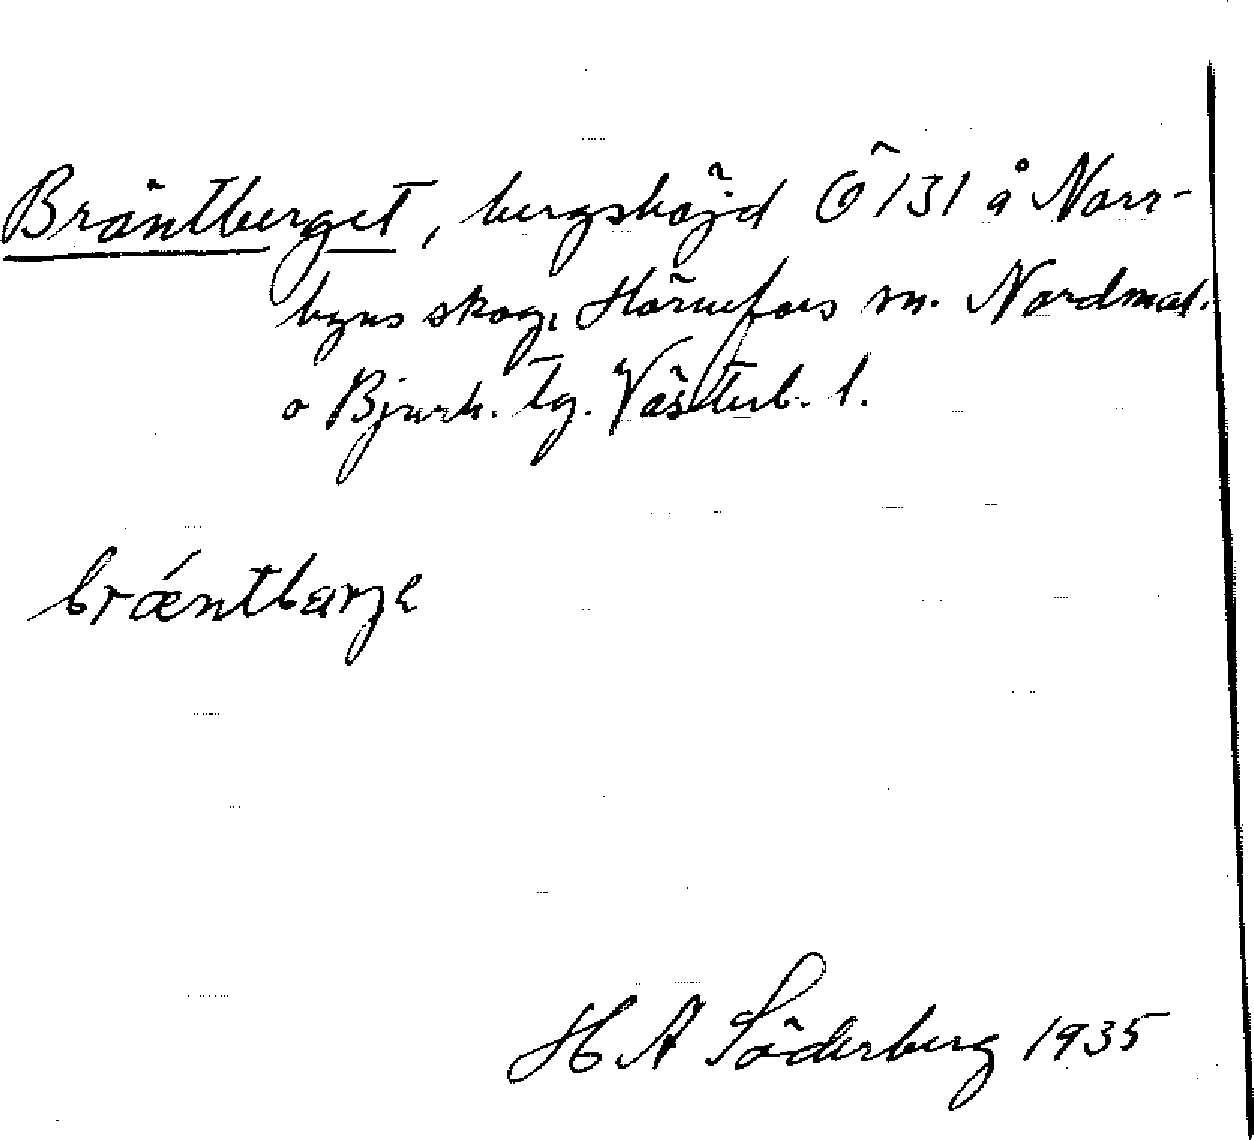 Bräntberget, bergshöjd Ö 131 å Norr-
byns skog, Hörnefors sn. Nordmal.
o Bjurh. tg. Västerb. l.
bræ´ntbærje
H A Söderberg 1935